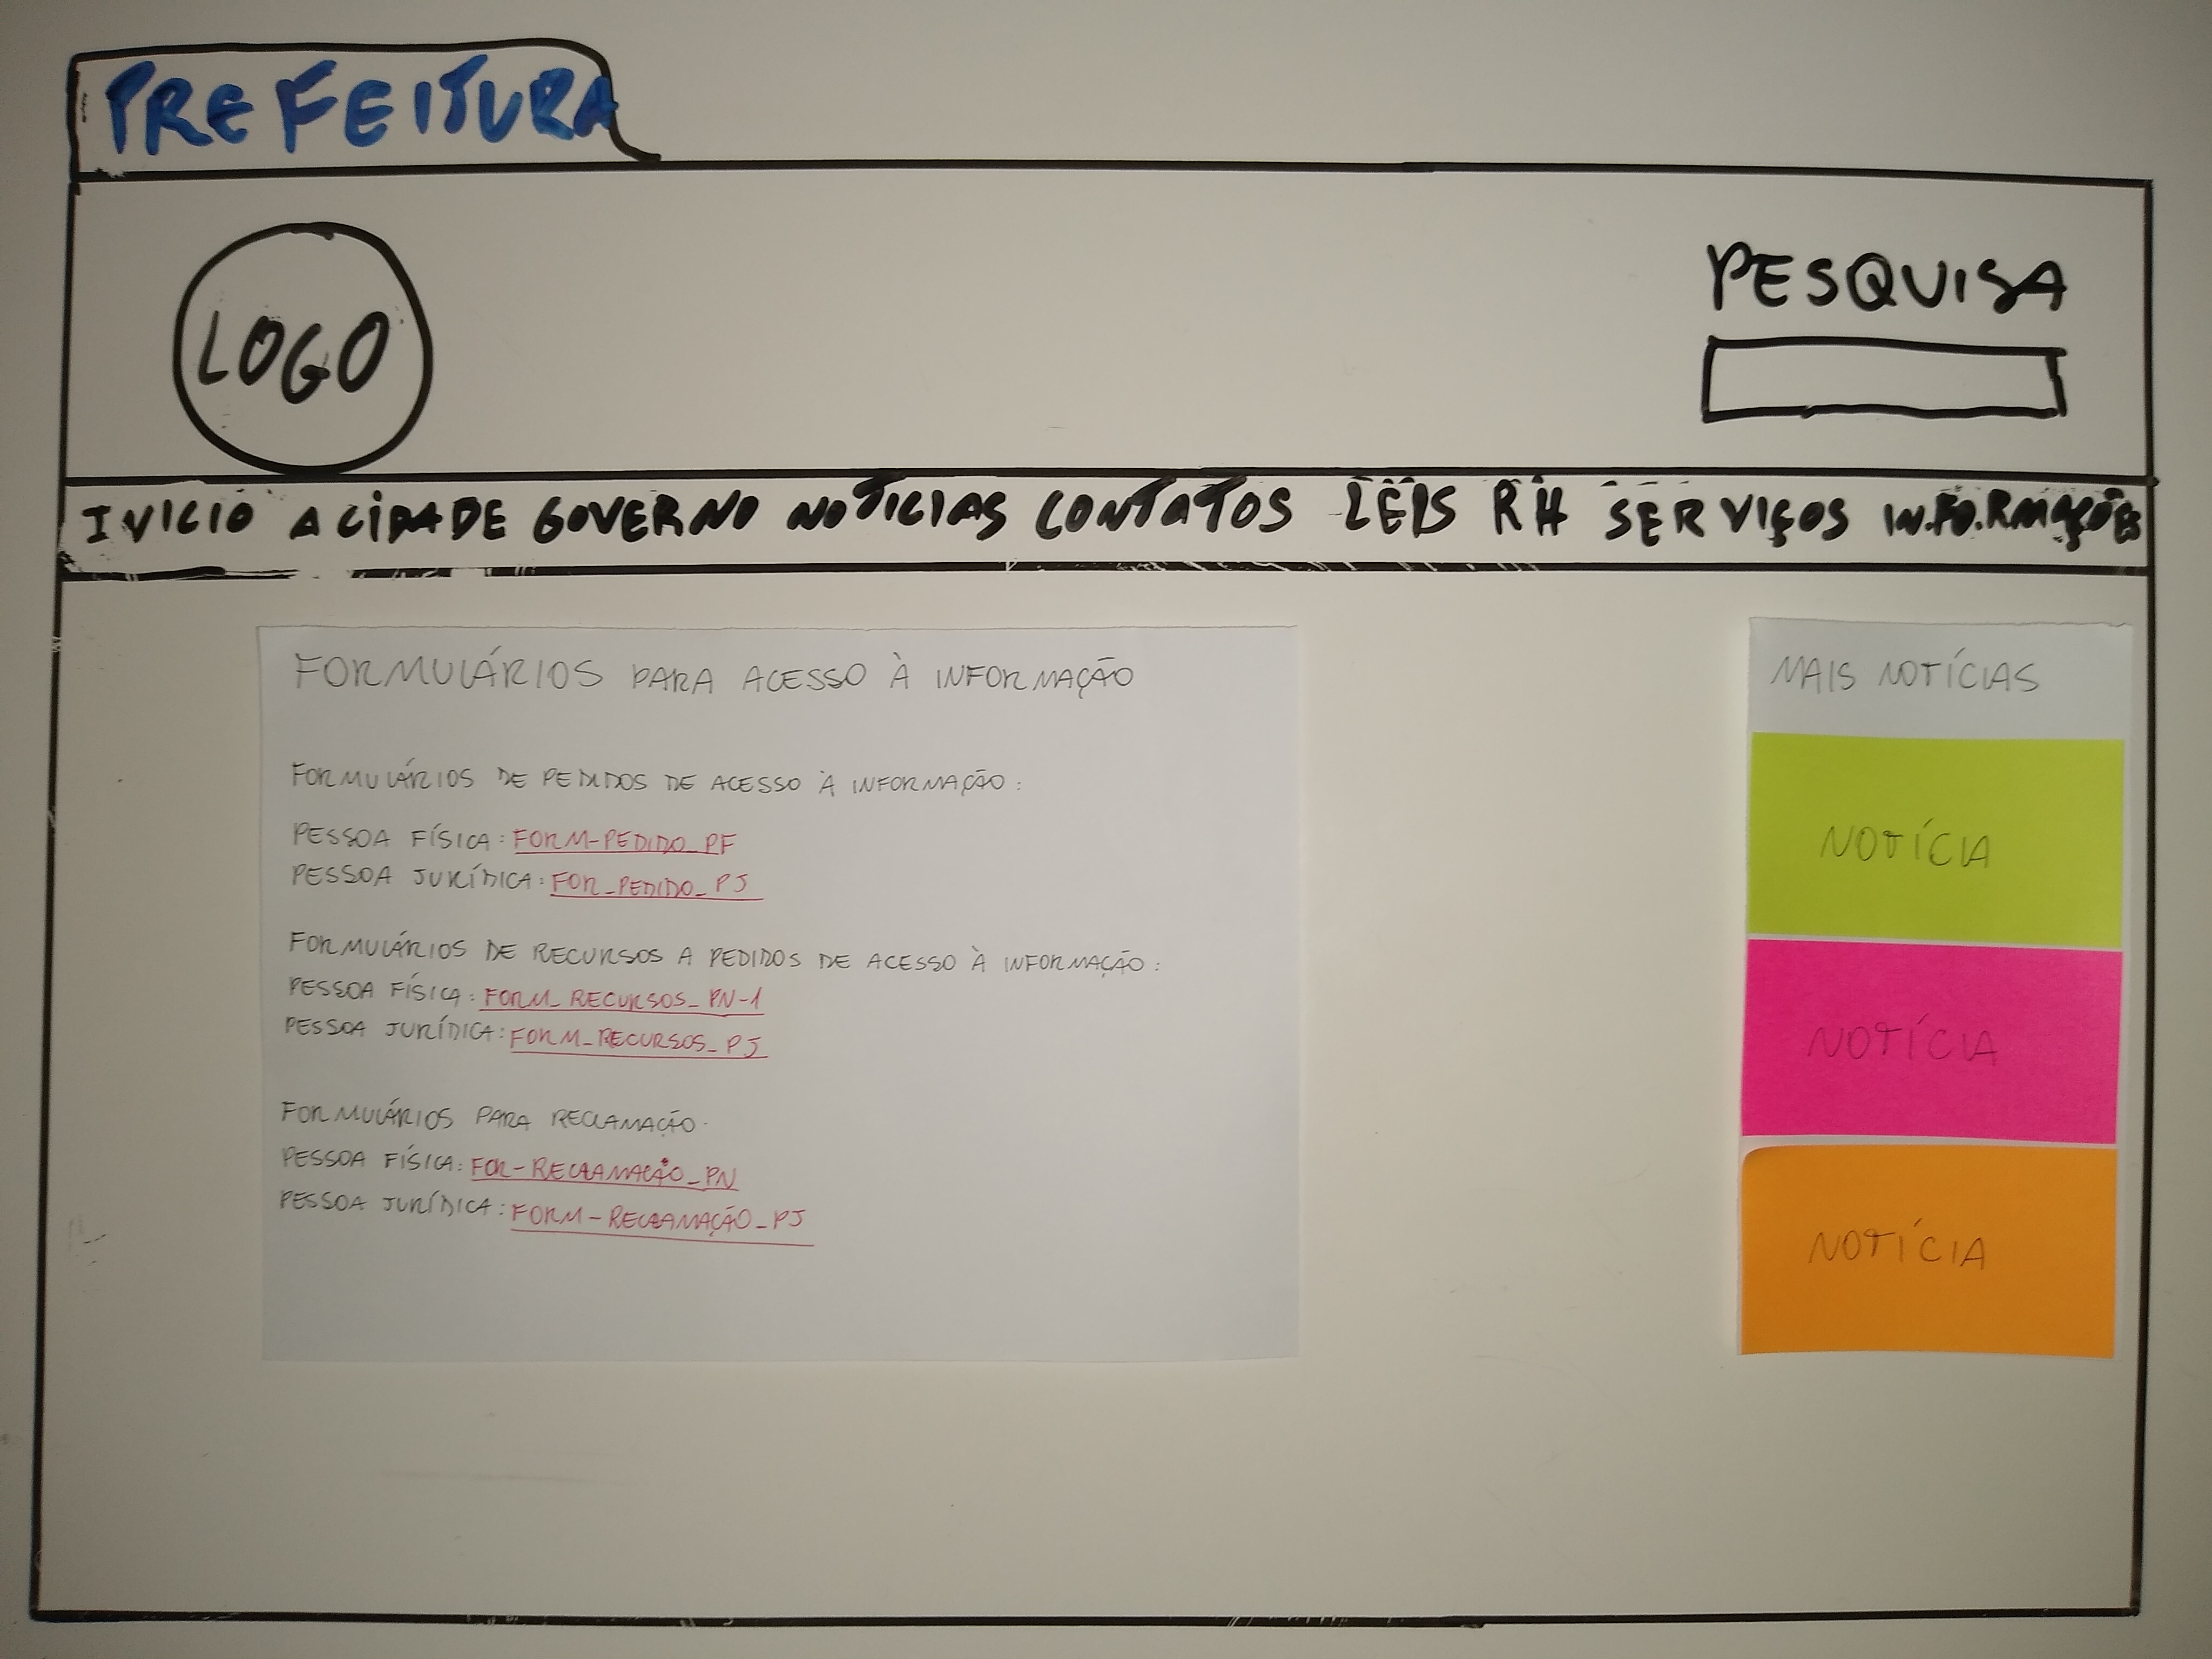 PREFEITURA
LOGO
PESQUISA
INICIO A CIDADE GOVERNO NOTICIAS CONTATOS LEIS RH SERVIÇOS INFORMAÇÕES
FORMULÁRIOS PARA ACESSO À INFORMAÇÃO
FORMULÁRIOS DE PEDIDOS DE ACESSO À INFORMAÇÃO:
PESSOA FÍSICA: FORM-PEDIDO_PF
PESSOA JURÍDICA: FOR_PEDIDO_PJ
FORMULÁRIOS DE RECURSOS A PEDIDOS DE ACESSO À INFORMAÇÃO:
PESSOA FÍSICA: FORM_RECURSOS_PN-1
PESSOA JURÍDICA: FORM_RECURSOS_PJ
FORMULÁRIOS PARA RECLAMAÇÃO.
PESSOA FÍSICA: FOR-RECLAMAÇÃO_PN
PESSOA JURÍDICA: FORM-RECLAMAÇÃO_PJ
MAIS NOTÍCIAS
NOTÍCIA
NOTÍCIA
NOTÍCIA